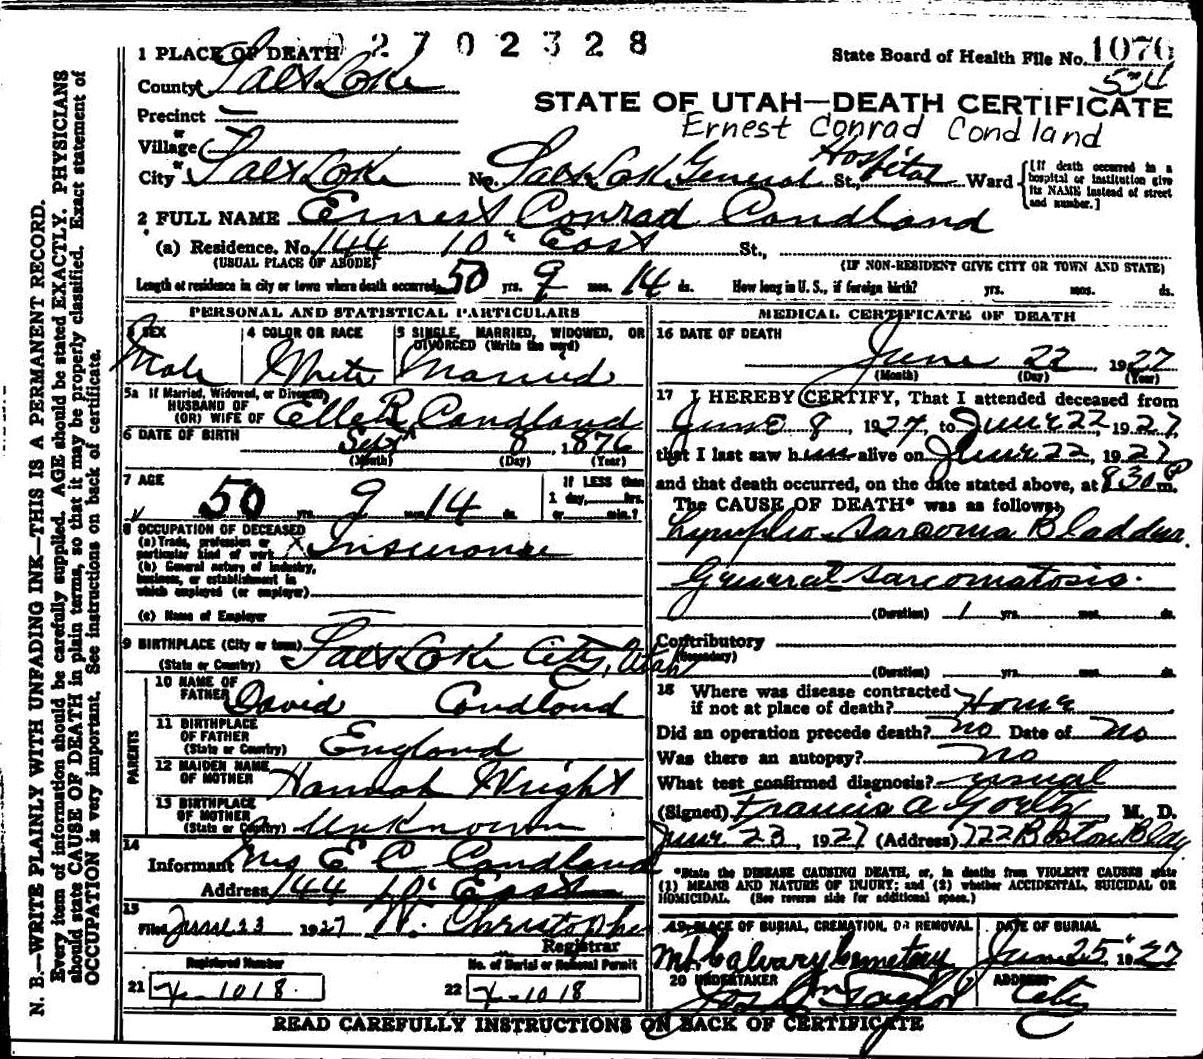 02702328
1 PLACE OF DEATH
State Board of Health File No. 1076
County Salt Lake
534
STATE OF UTAH—DEATH CERTIFICATE
Precinct
Ernest Conrad Condland
or
Village
or
City Salt Lake No. Salt Lake General Hospital St., Ward
[If death occurred in a hospital or institution give its NAME instead of street and number.]
2 FULL NAME Ernest Conrad Candland
(a) Residence. No. 144 10" East St.,
(USUAL PLACE OF ABODE)
(IF NON-RESIDENT GIVE CITY OR TOWN AND STATE)
Length of residence in city or town where death occurred 50 yrs. 9 mos. 14 ds. How long in U. S., if foreign birth? yrs. mos. ds.
PERSONAL AND STATISTICAL PARTICULARS
3 SEX
Male
4 COLOR OR RACE
White
5 SINGLE, MARRIED, WIDOWED, OR
DIVORCED (Write the word)
Married
5a If Married, Widowed, or Divorced
HUSBAND OF
(OR) WIFE OF Ella R Candland
6 DATE OF BIRTH Sept 8, 1876
(Month) (Day) (Year)
7 AGE
50 yrs. 9 mos. 14 ds.
If LESS than
1 day, hrs.
or min.?
8 OCCUPATION OF DECEASED
(a) Trade, profession or
particular kind of work X Insurance
(b) General nature of industry,
business, or establishment in
which employed (or employer)
(c) Name of Employer
9 BIRTHPLACE (City or town) Salt Lake City, Utah
(State or Country)
PARENTS
10 NAME OF
FATHER David Candland
11 BIRTHPLACE
OF FATHER
(State or Country) England
12 MAIDEN NAME
OF MOTHER Hannah Wright
13 BIRTHPLACE
OF MOTHER
(State or Country) Unknown
14
Informant Mrs E C Candland
Address 144 10" East
15
Filed June 23 1927 W. Christophe
Registrar
Registered Number
21 X-1018
No. of Burial or Removal Permit
22 X-1018
MEDICAL CERTIFICATE OF DEATH
16 DATE OF DEATH
June 22, 1927
(Month) (Day) (Year)
17 I HEREBY CERTIFY, That I attended deceased from
June 8, 1927, to June 22, 1927,
that I last saw him alive on June 22, 1927
and that death occurred, on the date stated above, at 830 P m.
The CAUSE OF DEATH* was as follows:
Lympho-Sarcoma Bladder.
General Sarcomatosis.
(Duration) 1 yrs. mos. ds.
Contributory
(Secondary)
(Duration) yrs. mos. ds.
18 Where was disease contracted
if not at place of death? Home
Did an operation precede death? no Date of no
Was there an autopsy? no
What test confirmed diagnosis? usual
(Signed) Francis A M. D.
June 23, 1927 (Address) 722 Boston Bldg
*State the DISEASE CAUSING DEATH, or, in deaths from VIOLENT CAUSES state
(1) MEANS AND NATURE OF INJURY; and (2) whether ACCIDENTAL, SUICIDAL OR
HOMICIDAL. (See reverse side for additional space.)
19 PLACE OF BURIAL, CREMATION, OR REMOVAL
Mt. Calvary Cemetery
DATE OF BURIAL
June 25, 1927
20 UNDERTAKER
Jos Wm Taylor
ADDRESS
City
READ CAREFULLY INSTRUCTIONS ON BACK OF CERTIFICATE
N. B.—WRITE PLAINLY WITH UNFADING INK—THIS IS A PERMANENT RECORD.
Every item of information should be carefully supplied. AGE should be stated EXACTLY. PHYSICIANS
should state CAUSE OF DEATH in plain terms, so that it may be properly classified. Exact statement of
OCCUPATION is very important. See instructions on back of certificate.